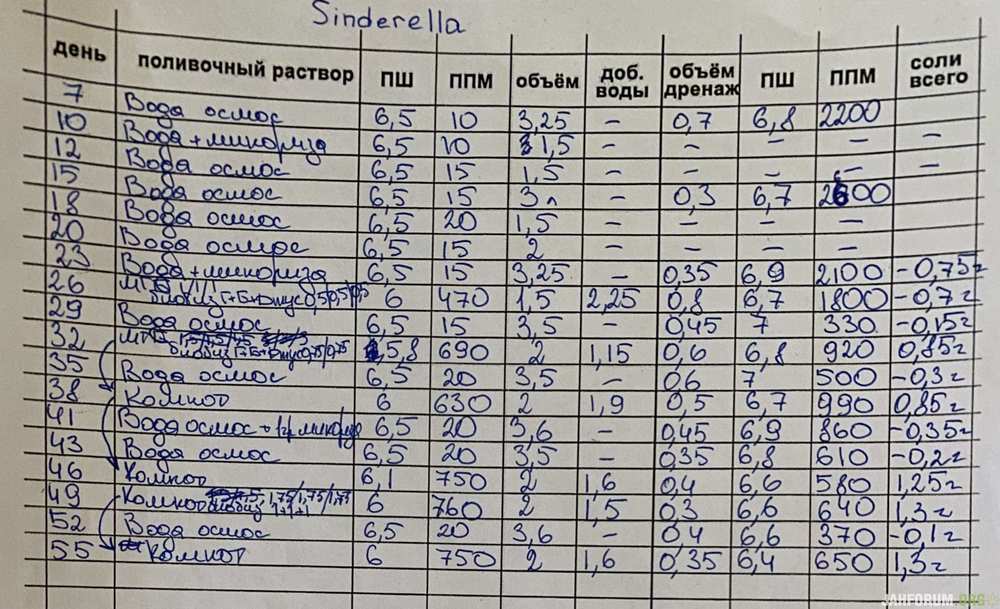 Sinderella
день поливочный раствор ПШ ППМ объём доб. воды объём дренаж ПШ ППМ соли всего
7 Вода осмос 6,5 10 3,25 – 0,7 6,8 2200
10 Вода+микориза 6,5 10 1,5 – – – – –
12 Вода осмос 6,5 15 1,5 – – – – –
15 Вода осмос 6,5 15 3л – 0,3 6,7 2600
18 Вода осмос 6,5 20 1,5 – – – –
20 Вода осмос 6,5 15 2 – – – –
23 Вода+микориза 6,5 15 3,25 – 0,35 6,9 2100 -0,75г
26 6 470 1,5 2,25 0,8 6,7 1800 -0,7г
29 Вода осмос 6,5 15 3,5 – 0,45 7 330 -0,15г
32 5,8 690 2 1,15 0,6 6,8 920 0,85г
35 Вода осмос 6,5 20 3,5 – 0,6 7 500 -0,3г
38 Компот 6 630 2 1,9 0,5 6,7 990 0,85г
41 Вода осмос + 6,5 20 3,6 – 0,45 6,9 860 -0,35г
43 Вода осмос 6,5 20 3,5 – 0,35 6,8 610 -0,2г
46 Компот 6,1 750 2 1,6 0,4 6,6 580 1,25г
49 Компот 1,75/1,75/1,75 биобиз 1+1+1 6 760 2 1,5 0,3 6,6 640 1,3г
52 Вода осмос 6,5 20 3,6 – 0,4 6,6 370 -0,1г
55 Компот 6 750 2 1,6 0,35 6,4 650 1,3г
JAHFORUM.ORG